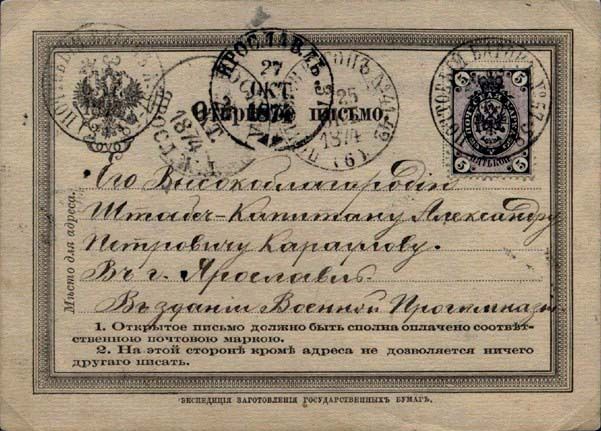 ЯРОСЛАВЛЬ
27
ОКТ.
1874
25
1874
(6)
ПОЧТОВЫЙ ВАГОНЪ
Открытое письмо.
5 5
ПЯТЬ КОП
5 5
Его Высокоблагородію
Штабсъ-Капитану Александру
Петровичу Караулову.
Въ г. Ярославль.
Въ зданіи Военной Прогимназіи
Мѣсто для адреса:
1. Открытое письмо должно быть сполна оплачено соотвѣт-
ственною почтовою маркою.
2. На этой сторонѣ кромѣ адреса не дозволяется ничего
другаго писать.
ЭКСПЕДИЦІЯ ЗАГОТОВЛЕНІЯ ГОСУДАРСТВЕННЫХЪ БУМАГЪ.